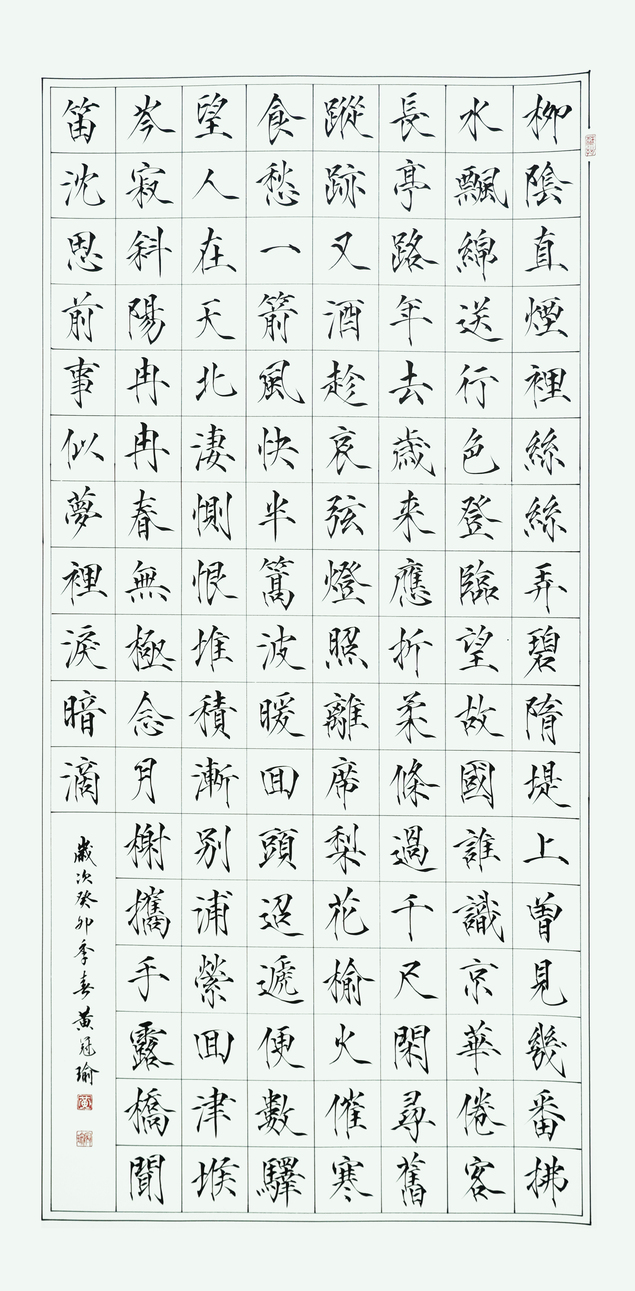 柳陰直煙裡絲絲弄碧隋堤上曽見幾番拂
水飄綿送行色登臨望故國誰識京華倦客
長亭路年去歲来應折柔條過千尺閑尋舊
蹤跡又酒趁哀弦燈照離席梨花榆火催寒
食愁一箭風快半篙波暖回頭迢遞便數驛
望人在天北淒惻恨堆積漸別浦縈回津堠
岑寂斜陽冉冉春無極念月榭攜手露橋聞
笛沈思前事似夢裡淚暗滴
歲次癸卯季春黃冠瑜